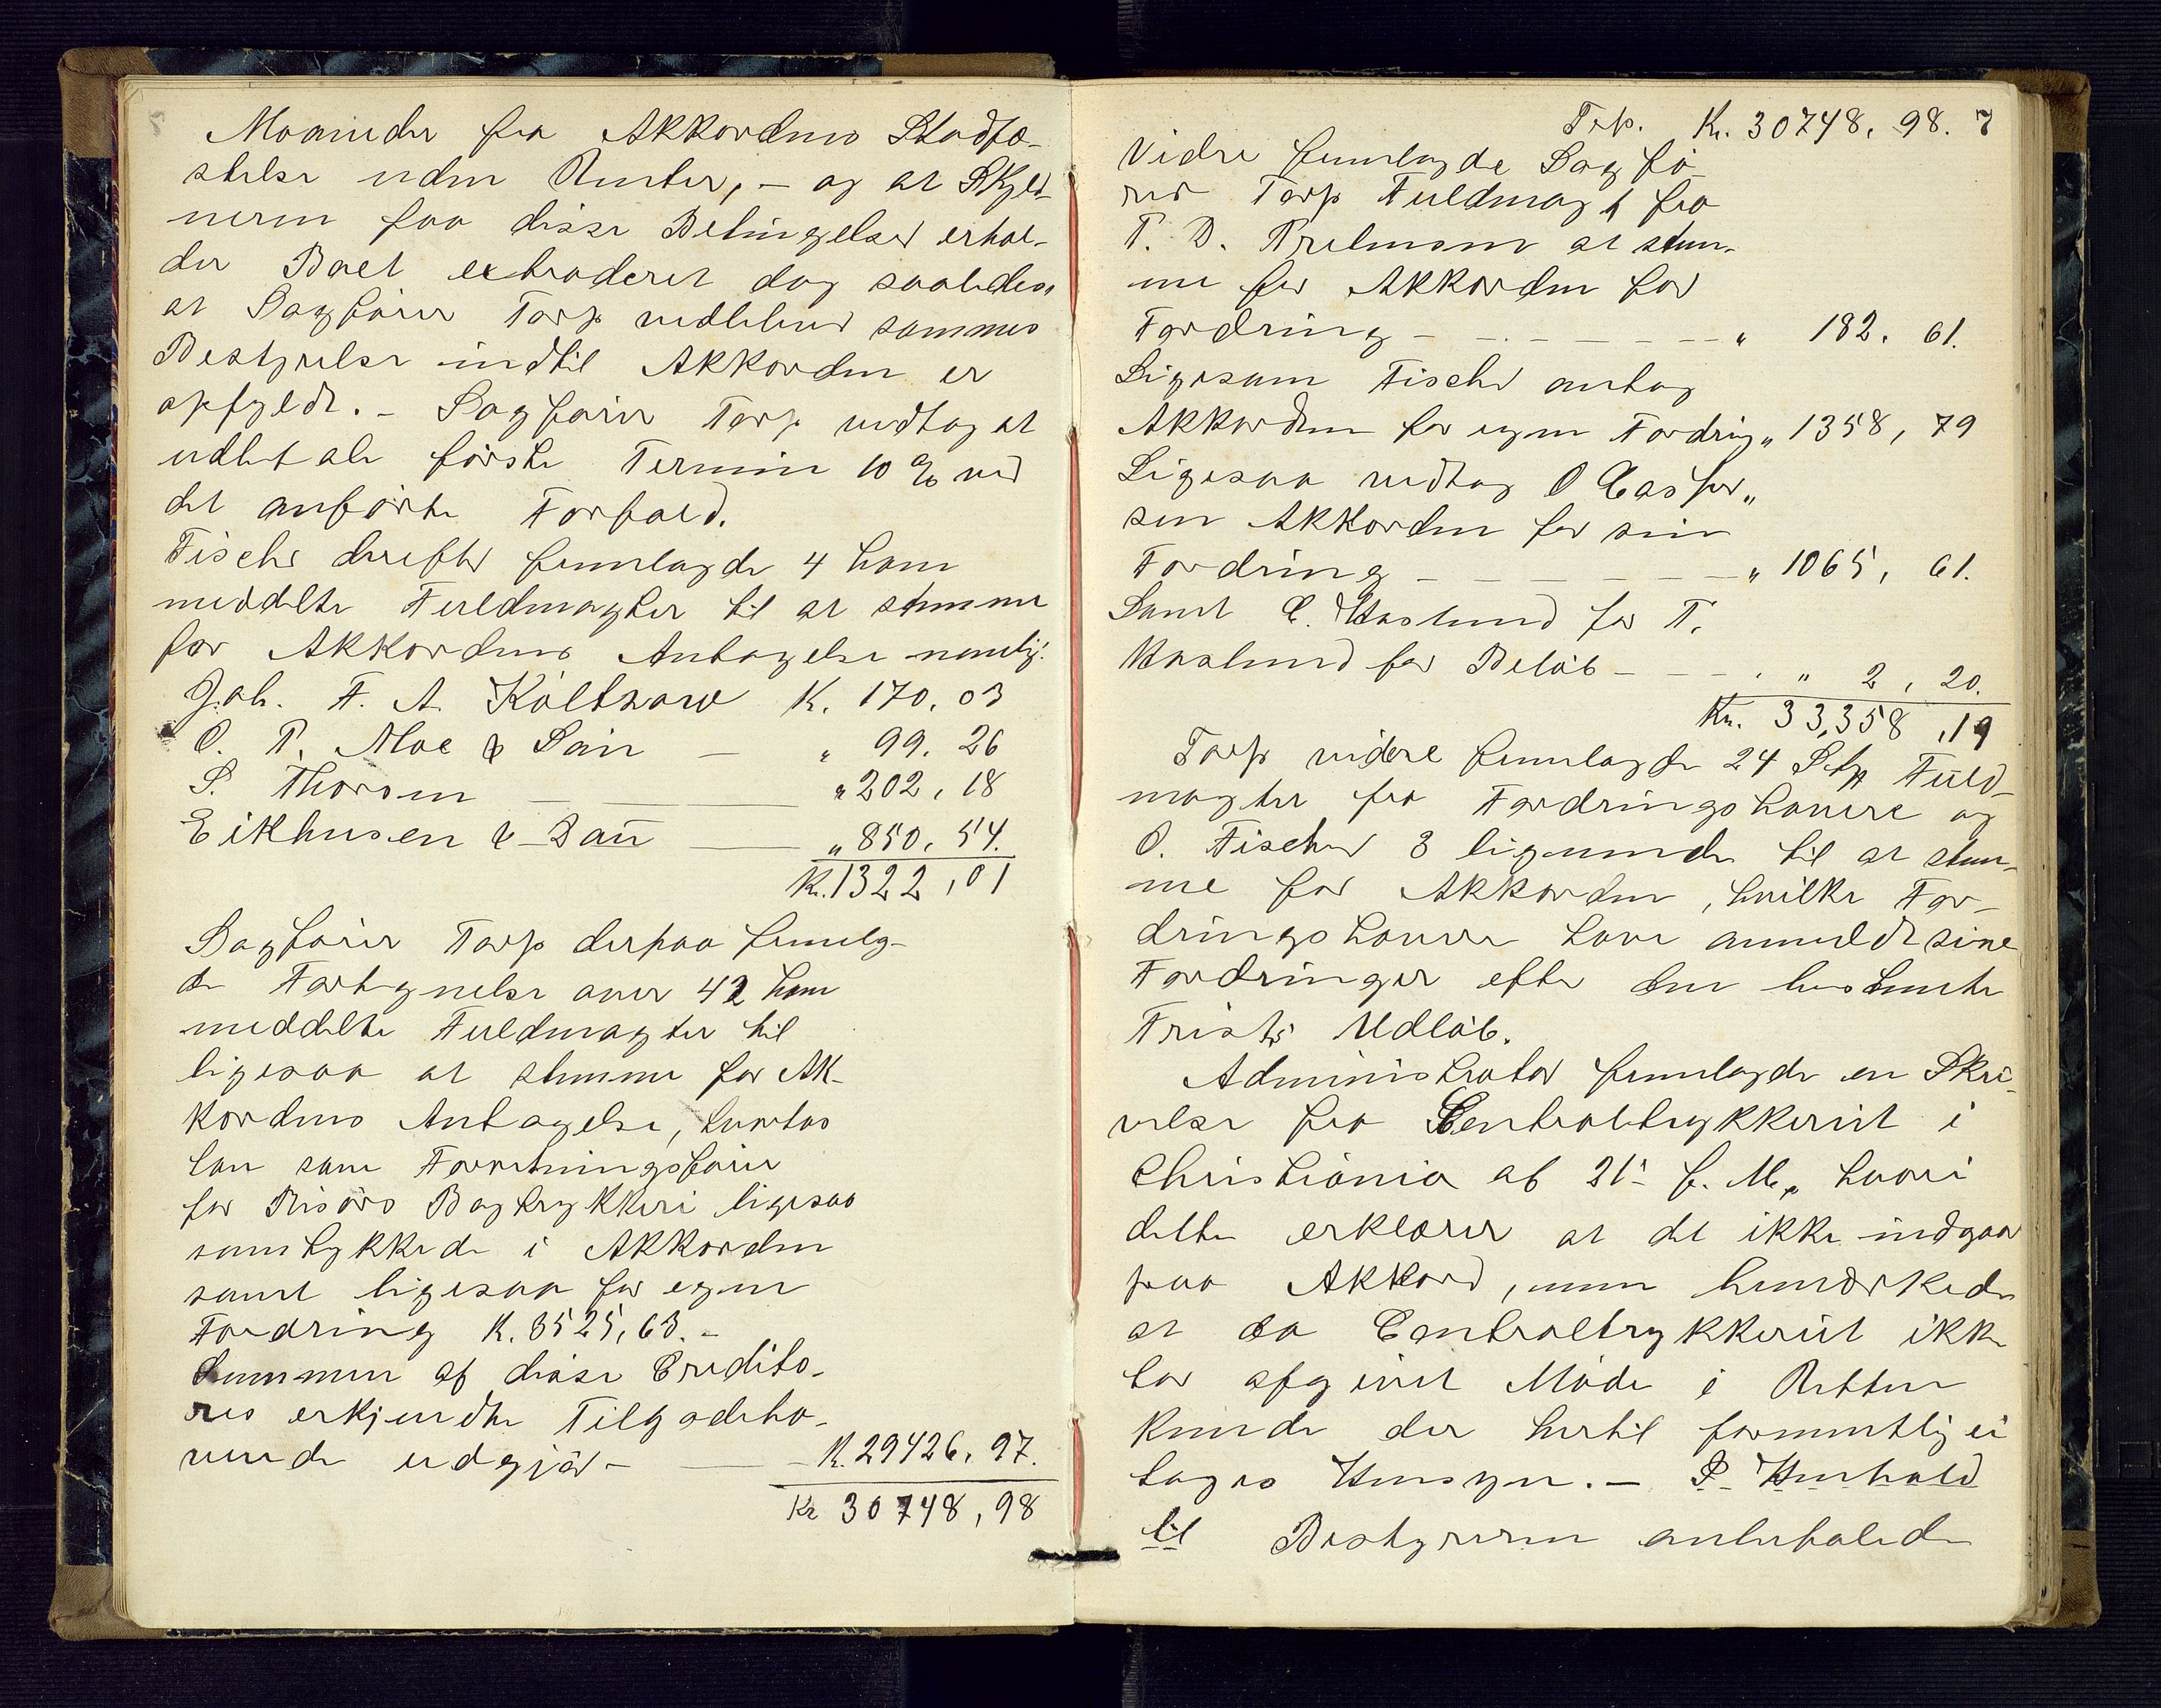 Maaneder fra Akkordens Stadfæ-
stelse uden Renter, – og at Skyld-
neren paa disse Betingelser erhol-
der Boet extraderet dog saaledes
at Sagfører Torp vedbliver sammes
Bestyrelse indtil Akkorden er
opfyldt. – Sagfører Torp vedtog at
udbetale første Termin 10 % ved
det anførte Forfald.
Fischer derefter fremlagde 4 ham
meddelte Fuldmagter til at stemme
for Akkordens Antagelse nemlig:
Joh. F. A. Költzow K. 170,03
O. P. Moe & Søn — " 99. 26
S. Thorsen — — " 202, 18
Eikhusen & Bau — " 850, 54.
Kr. 1322,01
Sagfører Torp derpaa fremlag-
de Fortegnelse over 42 ham
meddelte Fuldmagter til
ligesaa at stemme for Ak-
kordens Antagelse, hvorhos
han som Forretningsfører
for Risørs Bogtrykkeri ligesaa
samtykkede i Akkorden
samt ligesaa for egen
Fordring K. 3525,63. –
Summen af disse Credito-
res erkjendte Tilgodeha-
vende udgjør – — K. 29426. 97.
Kr 30748,98
Trp. Kr. 30748, 98. 7
Videre fremlagde Sagfø-
rer Torp Fuldmagt fra
T. D. at stem-
me for Akkorden for
Fordring – – – – – – – " 182. 61.
Ligesom Fischer antog
Akkorden for egen Fordring " 1358, 79
Ligesaa vedtog O Casper-
sen Akkorden for sin
Fordring – – – – – – – " 1065, 61.
Samt C. Haslund for T.
Haslund for Beløb – – – . " 2, 20.
Kr. 33,358,19
Torp videre fremlagde 24 Stk Fuld-
magter fra Fordringshavere og
O. Fischer 3 lignende til at stem-
me for Akkorden, hvilke For-
dringshavere have anmeldt sine
Fordringer efter den bestemte
Frists Udløb.
Administrator fremlagde en Skri-
velse fra Centraltrykkeriet i
Christiania af 21- f. M., hvori
dette erklærer at det ikke indgaar
paa Akkord, men bemærkede
at da Centraltrykkeriet ikke
har afgivet Møde i Retten
kunde der hertil formentlig ei
tages Hensyn. – I Henhold
til Bestyreren anbefalede